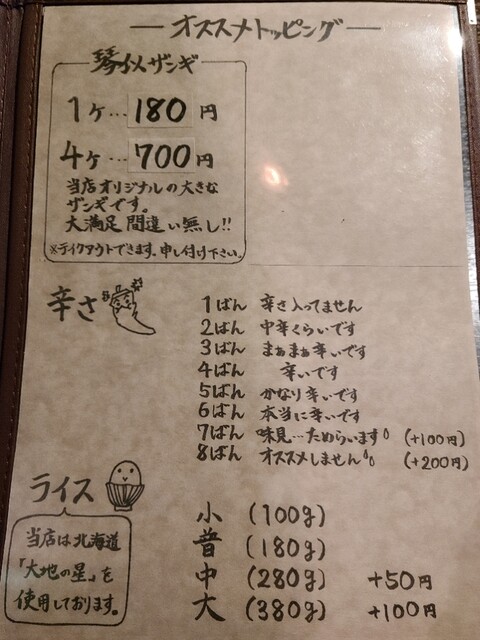 オススメトッピング
琴似ザンギ
1ヶ…180円
4ヶ…700円
当店オリジナルの大きな
ザンギです。
大満足間違い無し!!
※テイクアウトできます。申し付け下さい。
辛さ
1ばん 辛さ入ってません
2ばん 中辛くらいです
3ばん まぁまぁ辛いです
4ばん 辛いです
5ばん かなり辛いです
6ばん 本当に辛いです
7ばん 味見…ためらいます (+100円)
8ばん オススメしません (+200円)
ライス
当店は北海道
「大地の星」を
使用しております。
小 (100g)
普 (180g)
中 (280g) +50円
大 (380g) +100円